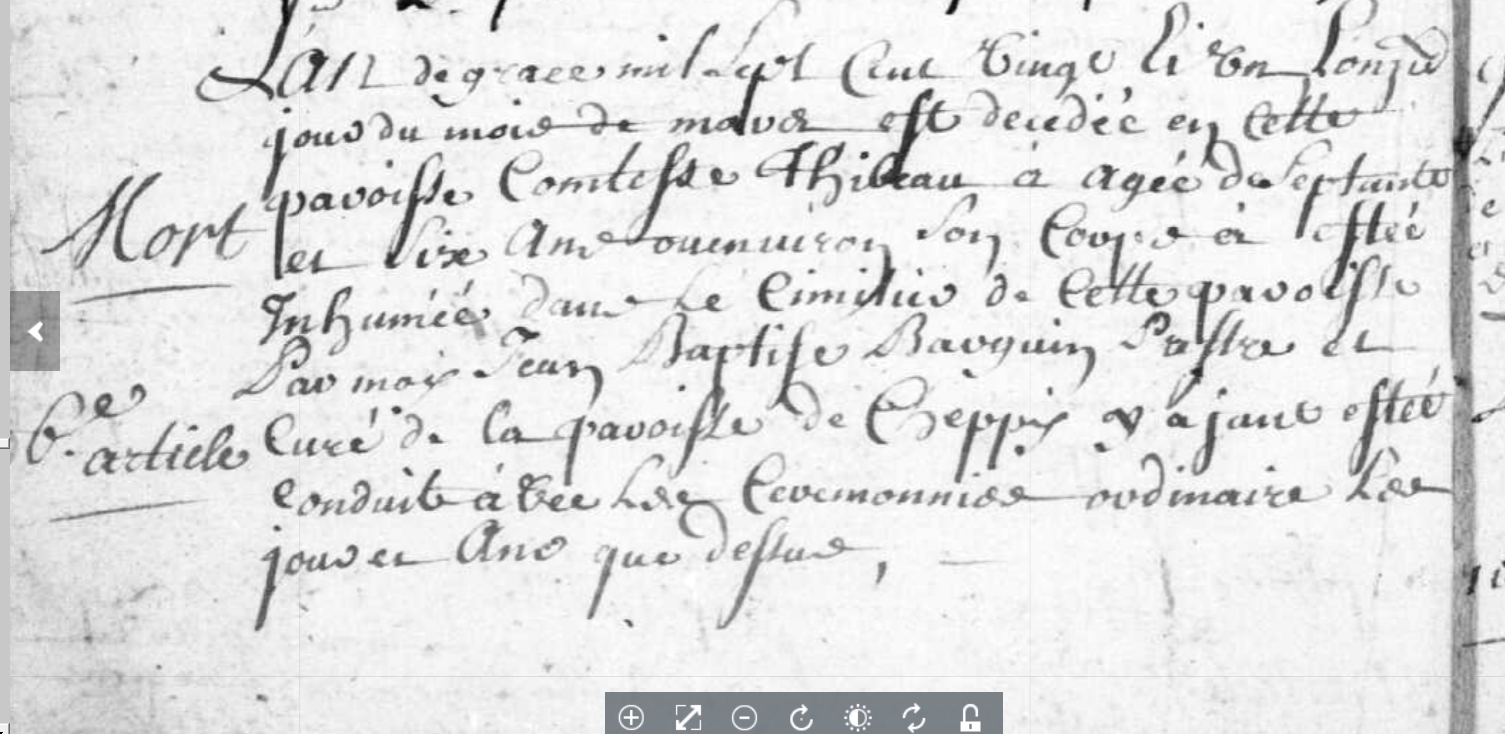 L'An de grace mil sept Cent Vingt et Un Lonzie
jour du mois de mars est decedéé en Cette
paroisse Comtesse Thibeau a agéé de septante
Mort
et six Ans ou enuiron son Corps a estéé
Inhuméé dans Le Cimitier de Cette paroisse
Par moy Jean Baptise Barquin Prestre et
6.e article
Curé de la paroisse de Cheppy y ajant estéé
Conduit àvec Les Ceremonnies ordinaire Les
jour et Ans que dessus,